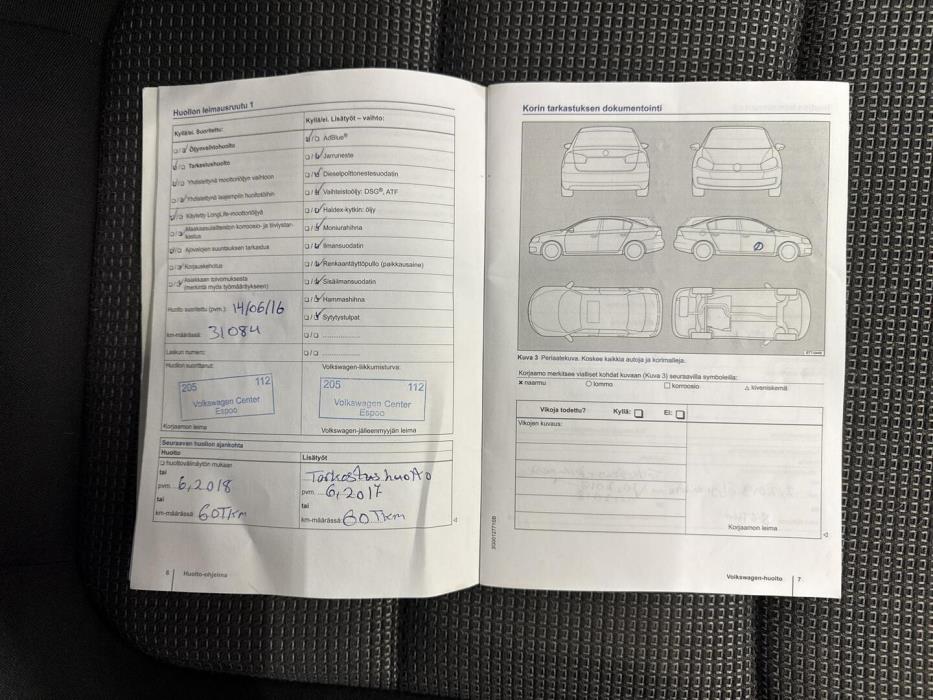 Huollon leimausruutu 1
Kyllä/ei. Suoritettu:
Öljynvaihtohuolto
Tarkastushuolto
Yhdistettynä moottoriöljyn vaihtoon
Yhdistettynä laajempiin huoltotöihin
Käytetty LongLife-moottoriöljyä
Maakaasulaitteiston korroosio- ja tiiviystar-
kastus
Ajovalojen suuntauksen tarkastus
Korjauskehotus
Asiakkaan toivomuksesta
(merkintä myös työmääräykseen)
Huolto suoritettu (pvm.): 14/06/16
km-määrässä: 31084
Laskun numero:
Huollon suorittanut:
205 112
Volkswagen Center
Espoo
Korjaamon leima
Kyllä/ei. Lisätyöt – vaihto:
AdBlue®
Jarruneste
Dieselpolttonestesuodatin
Vaihteistoöljy: DSG®, ATF
Haldex-kytkin: öljy
Moniurahihna
Ilmansuodatin
Renkaantäyttöpullo (paikkausaine)
Sisäilmansuodatin
Hammashihna
Sytytystulpat
Volkswagen-liikkumisturva:
205 112
Volkswagen Center
Espoo
Volkswagen-jälleenmyyjän leima
Seuraavan huollon ajankohta
Huolto
huoltovälinäytön mukaan
tai
pvm. 6,2018
tai
km-määrässä: 60Tkm
Lisätyöt
Tarkastushuolto
pvm. 6,2017
tai
km-määrässä: 60Tkm
6 Huolto-ohjelma
Korin tarkastuksen dokumentointi
Kuva 3 Periaatekuva. Koskee kaikkia autoja ja korimalleja.
Korjaamo merkitsee vialliset kohdat kuvaan (Kuva 3) seuraavilla symboleilla:
× naarmu ○ lommo □ korroosio △ kiveniskemä
Vikoja todettu? Kyllä: Ei:
Vikojen kuvaus:
Korjaamon leima
Volkswagen-huolto 7